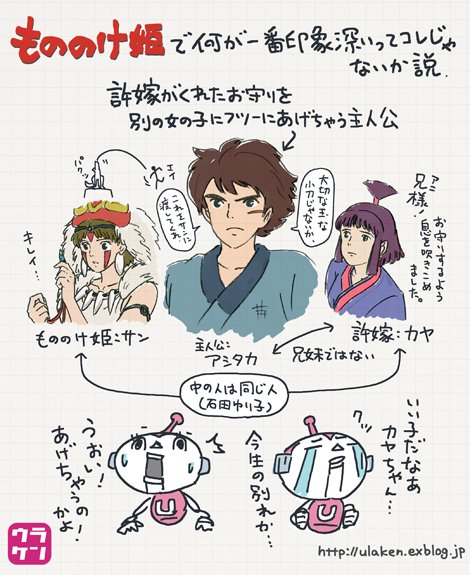 もののけ姫で何が一番印象深いってコレじゃ
ないか説.
許嫁がくれたお守りを
別の女の子にフツーにあげちゃう主人公
パクッ
エイ
キレイ…
これをサンに
渡してくれ。
大切な玉な
小刀じゃないか、
アシ
兄様!
お守りするよう
息を吹きこめ
ました。
もののけ姫:サン
主人公:
アシタカ
許嫁:カヤ
兄妹ではない
中の人は同じ人
(石田ゆり子)
うおい!
あげちゃうの
かよ!
今生の別れか…
いい子だなあ
カヤちゃん…
クッ
U
U
ウラ
ケン
http://ulaken.exblog.jp